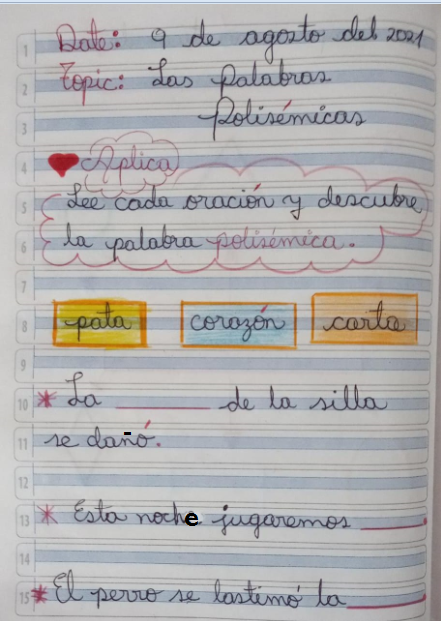 1 Date: 9 de agosto del 2021
2 Topic: Las Palabras
3 Polisémicas
4 Aplica
5 Lee cada oración y descubre
6 la palabra polisémica.
7
8 pata corazón carta
9
10 * La ________ de la silla
11 se dañó.
12
13 * Esta noche jugaremos ______.
14
15 * El perro se lastimó la ________